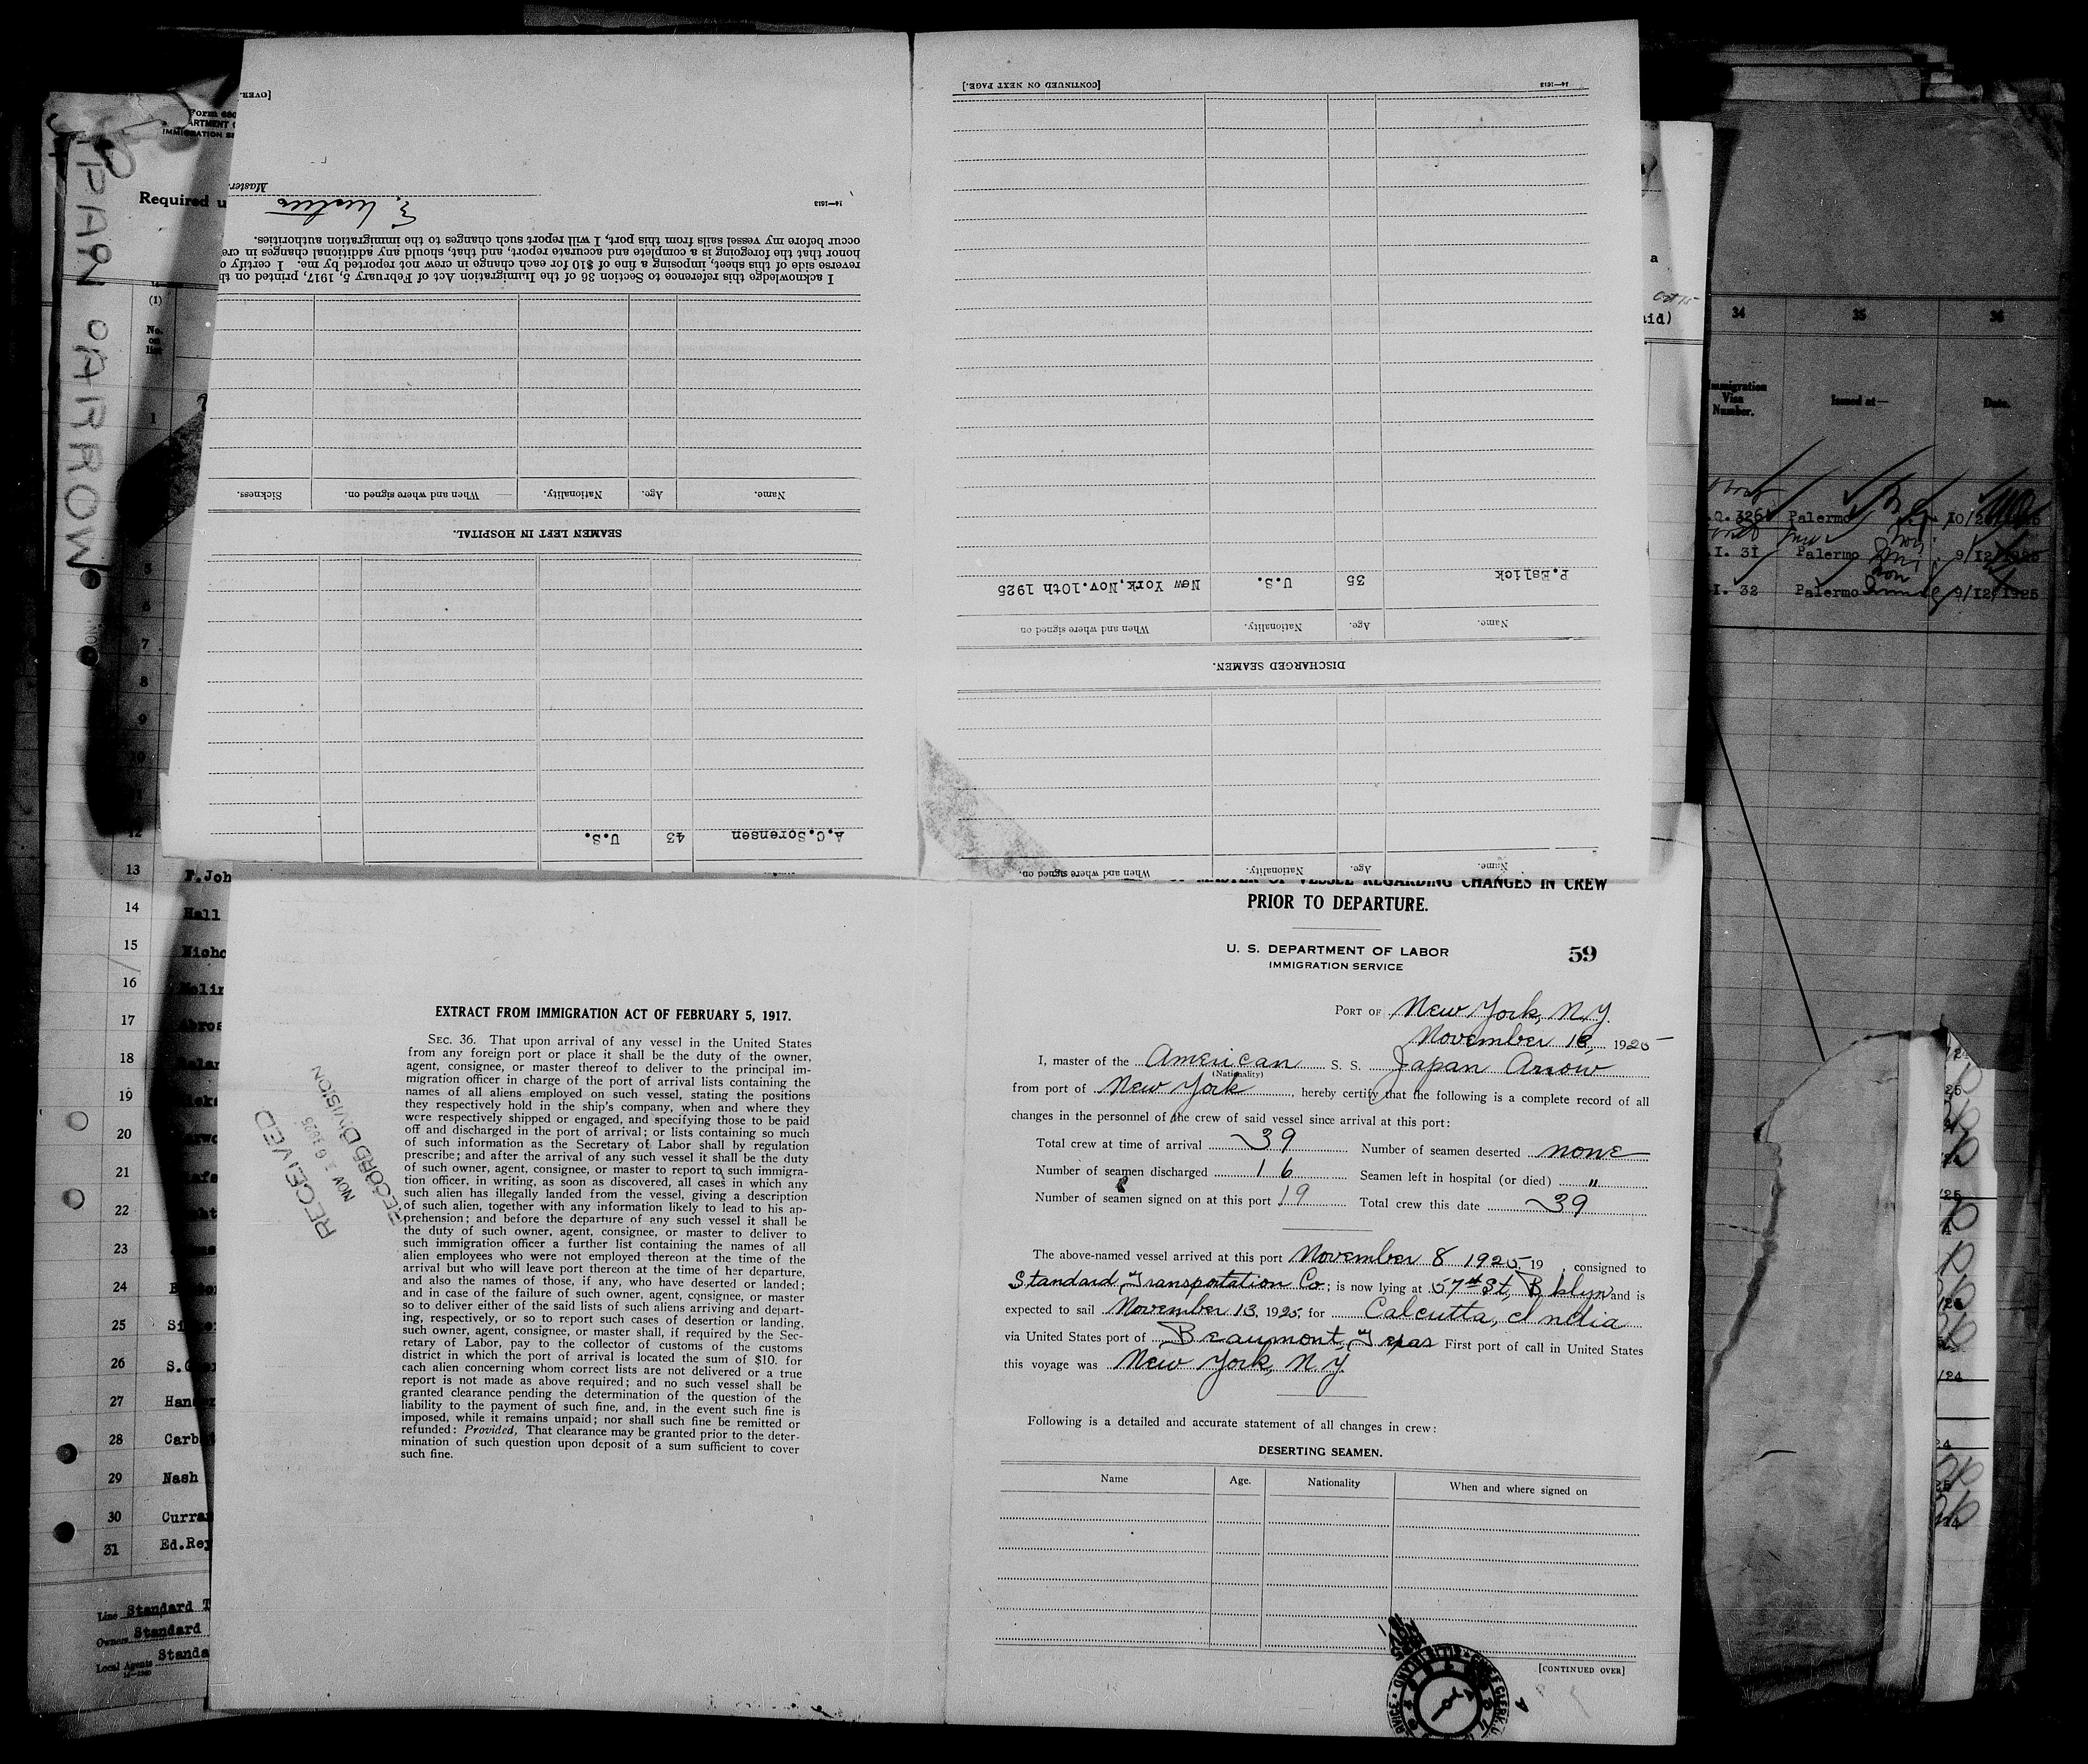 JAPAN ARROW
Form 680
IMMIGRATION SE
Required u
(1)
No.
on
list
1
5
6
7
8
9
10
11
12
13 F.Joh
14 Hall
15 Nicho
16
17
18
19
20
21
22
23
24
25
26
27
28
29 Nash
30 Curra
31 Ed.Rey
Line Standard T
Owners Standard
Local Agents Standa
[OVER.
Master.
14—1613
I acknowledge this reference to Section 36 of the Immigration Act of February 5, 1917, printed on th
reverse side of this sheet, imposing a fine of $10 for each change in crew not reported by me. I certify o
honor that the foregoing is a complete and accurate report, and that, should any additional changes in cre
occur before my vessel sails from this port, I will report such changes to the immigration authorities.
Name. Age. Nationality. When and where signed on. Sickness.
SEAMEN LEFT IN HOSPITAL.
A.C.Sorensen 43 U.S.
[CONTINUED ON NEXT PAGE.]
14—1613
P.Eslick 35 U.S. New York,Nov.10th 1925
Name. Age. Nationality. When and where signed on
DISCHARGED SEAMEN.
Name. Age. Nationality. When and where signed on.
a
aid)
34 35 36
Immigration
Visa
Number.
Issued at—
Date.
Palermo
I. 31 Palermo 9/12/1925
I. 32 Palermo 9/12/1925
EXTRACT FROM IMMIGRATION ACT OF FEBRUARY 5, 1917.
SEC. 36. That upon arrival of any vessel in the United States
from any foreign port or place it shall be the duty of the owner,
agent, consignee, or master thereof to deliver to the principal im-
migration officer in charge of the port of arrival lists containing the
names of all aliens employed on such vessel, stating the positions
they respectively hold in the ship's company, when and where they
were respectively shipped or engaged, and specifying those to be paid
off and discharged in the port of arrival; or lists containing so much
of such information as the Secretary of Labor shall by regulation
prescribe; and after the arrival of any such vessel it shall be the duty
of such owner, agent, consignee, or master to report to such immigra-
tion officer, in writing, as soon as discovered, all cases in which any
such alien has illegally landed from the vessel, giving a description
of such alien, together with any information likely to lead to his ap-
prehension; and before the departure of any such vessel it shall be
the duty of such owner, agent, consignee, or master to deliver to
such immigration officer a further list containing the names of all
alien employees who were not employed thereon at the time of the
arrival but who will leave port thereon at the time of her departure,
and also the names of those, if any, who have deserted or landed;
and in case of the failure of such owner, agent, consignee, or master
so to deliver either of the said lists of such aliens arriving and depart-
ing, respectively, or so to report such cases of desertion or landing,
such owner, agent, consignee, or master shall, if required by the Sec-
retary of Labor, pay to the collector of customs of the customs
district in which the port of arrival is located the sum of $10. for
each alien concerning whom correct lists are not delivered or a true
report is not made as above required; and no such vessel shall be
granted clearance pending the determination of the question of the
liability to the payment of such fine, and, in the event such fine is
imposed, while it remains unpaid; nor shall such fine be remitted or
refunded: Provided, That clearance may be granted prior to the deter-
mination of such question upon deposit of a sum sufficient to cover
such fine.
RECEIVED
NOV 16 1925
RECORD DIVISION
OF MASTER OF VESSEL REGARDING CHANGES IN CREW
PRIOR TO DEPARTURE.
U. S. DEPARTMENT OF LABOR
IMMIGRATION SERVICE
59
PORT OF New York, N.Y.
November 13, 1925
I, master of the American S. S. Japan Arrow
(Nationality)
from port of New York, hereby certify that the following is a complete record of all
changes in the personnel of the crew of said vessel since arrival at this port:
Total crew at time of arrival 39 Number of seamen deserted none
Number of seamen discharged 16 Seamen left in hospital (or died) "
Number of seamen signed on at this port 19 Total crew this date 39
The above-named vessel arrived at this port November 8 1925, 19 , consigned to
Standard Transportation Co.; is now lying at 57th St, B'klyn and is
expected to sail November 13, 1925, for Calcutta, India
via United States port of Beaumont, Texas First port of call in United States
this voyage was New York, N.Y.
Following is a detailed and accurate statement of all changes in crew:
DESERTING SEAMEN.
Name Age. Nationality When and where signed on
[CONTINUED OVER]